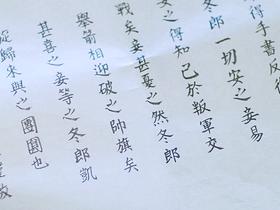 得手書反復
冬郎一切安之妾易
安之得知已於叛軍交
戰矣妾甚憂之然冬郎
舉箭相迎破之帥旗矣
甚喜之妾等之冬郎凱
旋歸來與之團圓也